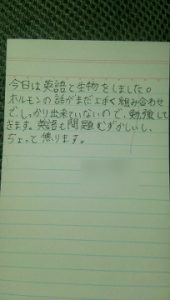 今日は英語と生物をしました。
ホルモンの話がまだ上手く組み合わせ
で、しっかり出来ていないので、勉強して
きます。英語も問題むずかしいし、
ちょっと焦ります。